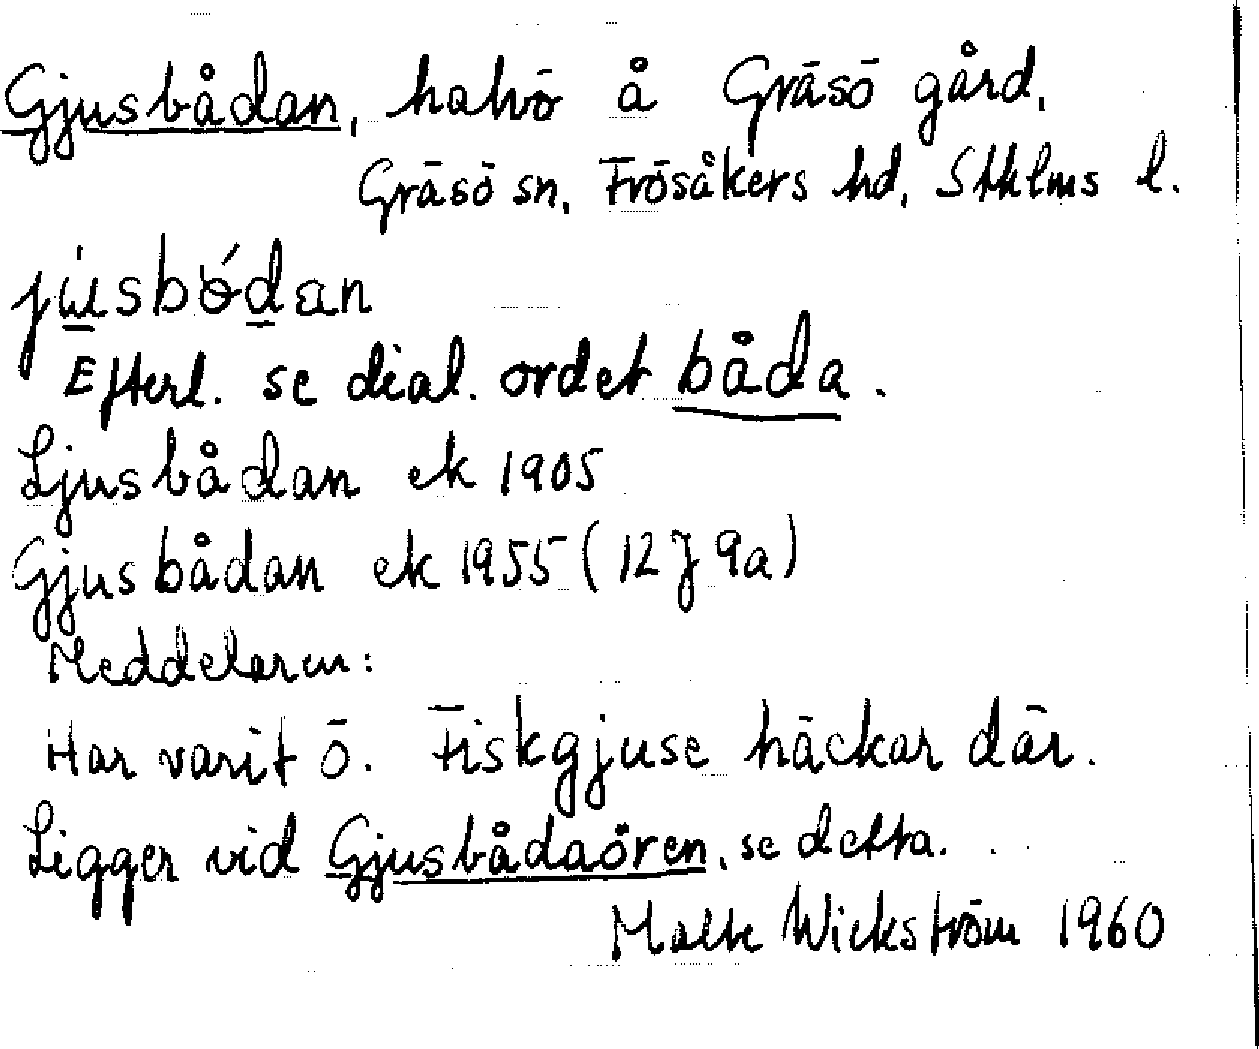 Gjusbådan, halvö å Gräsö gård,
Gräsö sn, Frösåkers hd, Sthlms l.
jú̲sbód̲an
Efterl. se dial. ordet båda.
Ljusbådan ek 1905
Gjusbådan ek 1955 (12J 9a)
Meddelaren:
Har varit ö. Fiskgjuse häckar där.
Ligger vid Gjusbådaören, se detta.
Malte Wickström 1960